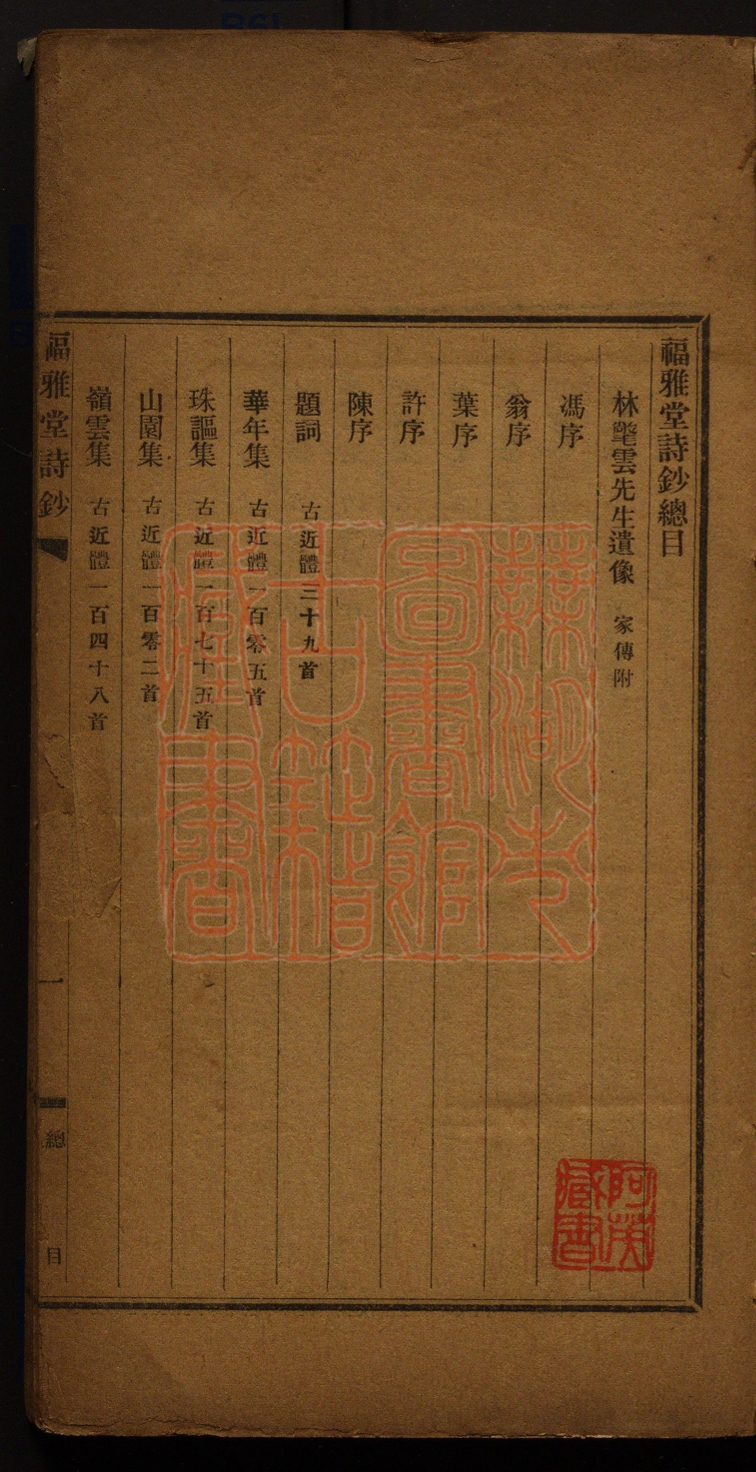 福雅堂詩鈔總目
林氅雲先生遺像 家傳附
馮序
翁序
葉序
許序
陳序
題詞 古近體三十九首
華年集 古近體一百零五首
珠謳集 古近體一百七十五首
山園集 古近體一百零二首
嶺雲集 古近體一百四十八首
福雅堂詩鈔
一
總目
蕪湖市
圖書館
古籍
藏書
阿英
藏書